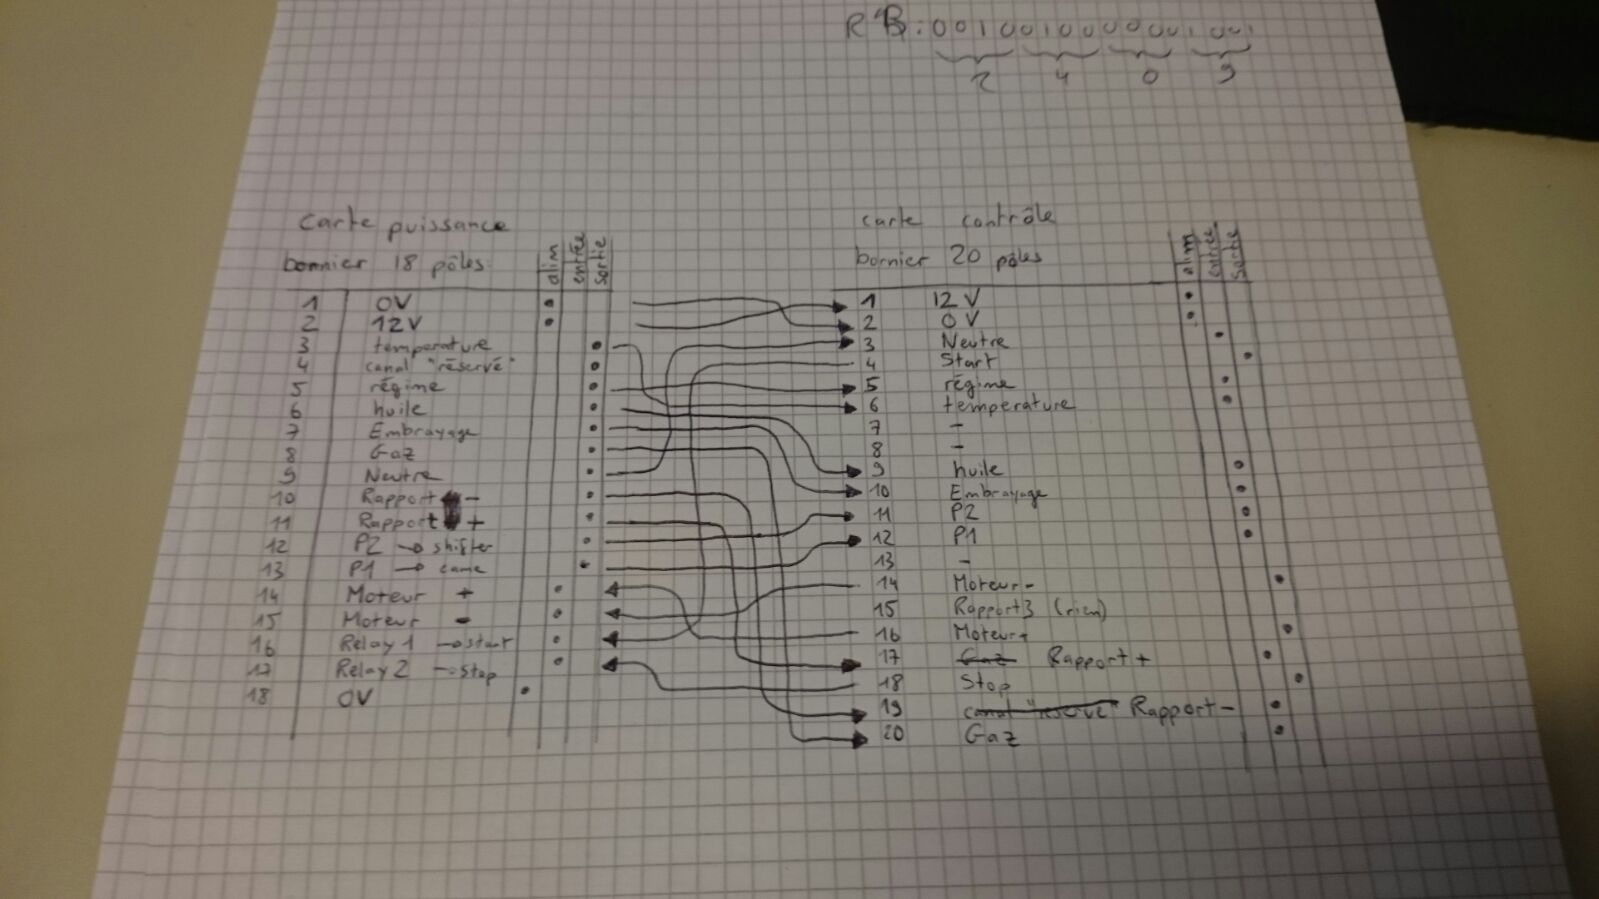 RB: 0010 0100 0000 1001
2 4 0 9
Carte puissance
bornier 18 pôles:
alim entrée sortie
1 0V
2 12V
3 temperature
4 canal "réservé"
5 régime
6 huile
7 Embrayage
8 Gaz
9 Neutre
10 Rapport -
11 Rapport +
12 P2 → shifter
13 P1 → came
14 Moteur +
15 Moteur -
16 Relay 1 → start
17 Relay 2 → stop
18 0V
carte contrôle
bornier 20 pôles
alim entrée sortie
1 12 V
2 0 V
3 Neutre
4 Start
5 régime
6 temperature
7 -
8 -
9 huile
10 Embrayage
11 P2
12 P1
13 -
14 Moteur-
15 Rapport3 (rien)
16 Moteur+
17 Gaz Rapport +
18 Stop
19 canal "réservé" Rapport -
20 Gaz